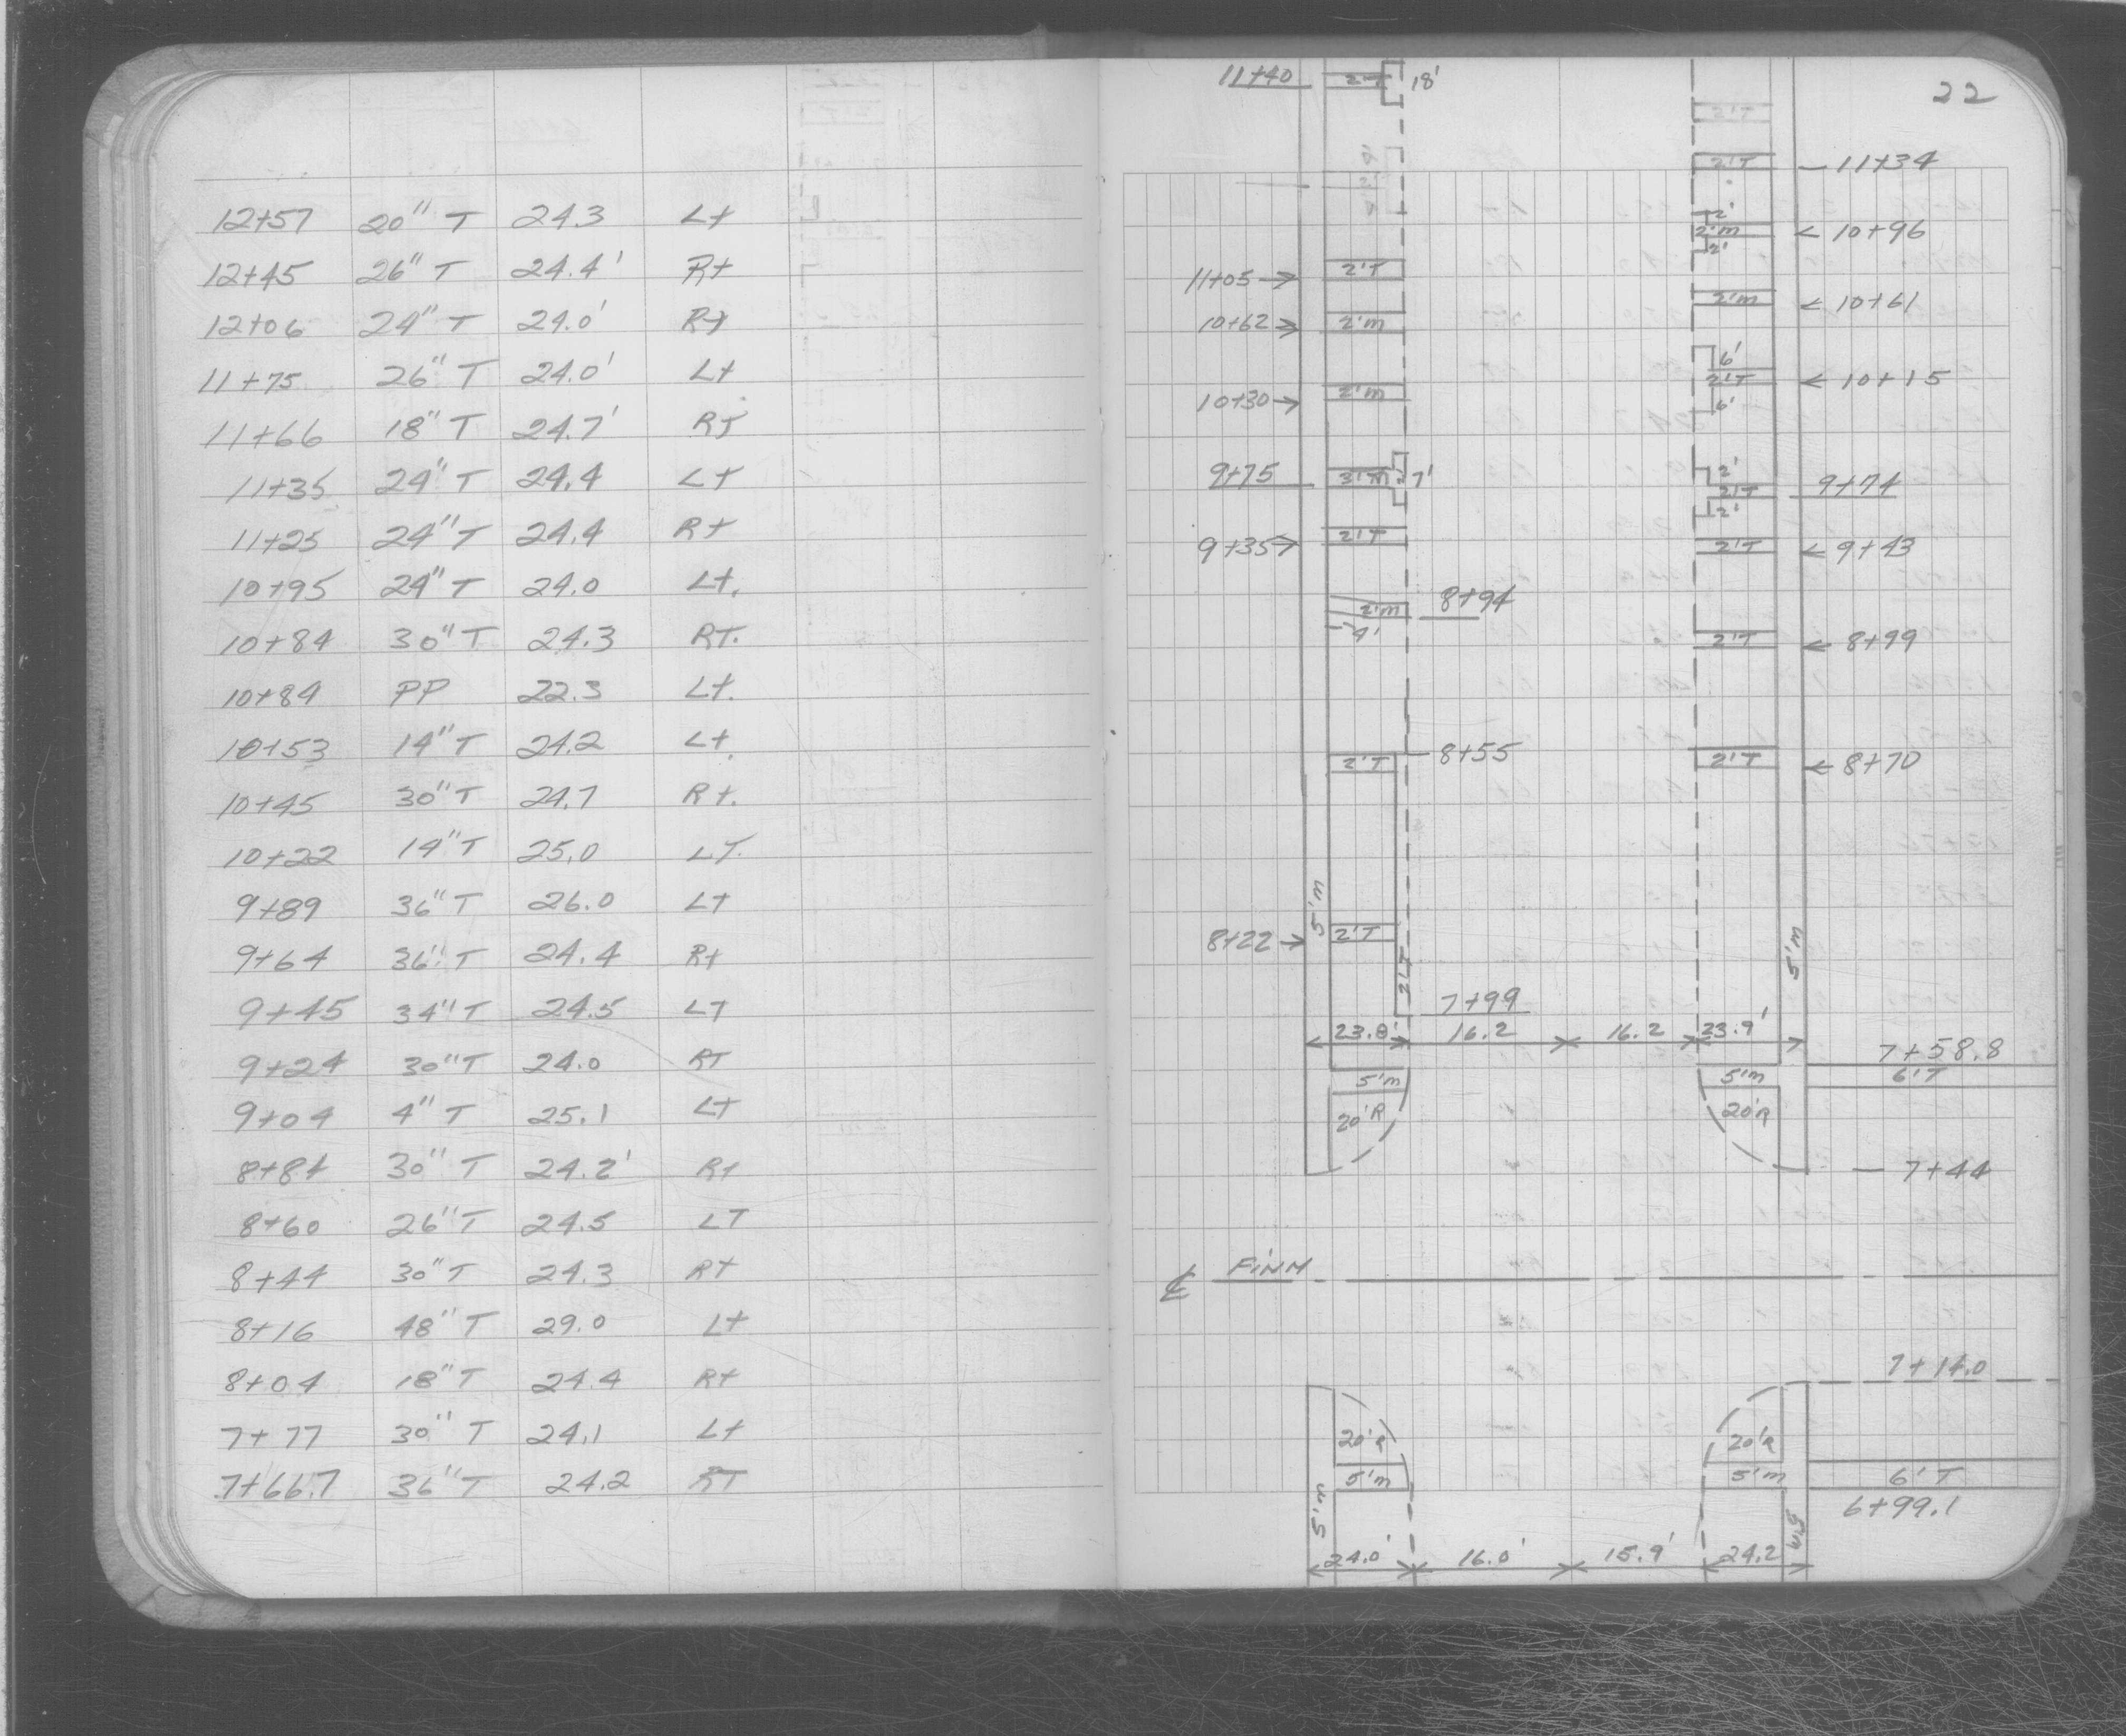 12+57 20" T 24.3 Lt
12+45 26" T 24.4' Rt
12+06 24" T 24.0' Rt
11+75 26" T 24.0' Lt
11+66 18" T 24.7' RT
11+35 24" T 24.4 Lt
11+25 24" T 24.4 Rt
10+95 24" T 24.0 Lt.
10+84 30" T 24.3 RT.
10+84 PP 22.3 Lt.
10+53 14" T 24.2 Lt.
10+45 30" T 24.7 Rt.
10+22 14" T 25.0 LT.
9+89 36" T 26.0 Lt
9+64 36" T 24.4 Rt
9+45 34" T 24.5 LT
9+24 30" T 24.0 RT
9+04 4" T 25.1 LT
8+84 30" T 24.2' Rt
8+60 26" T 24.5 LT
8+44 30" T 24.3 RT
8+16 48" T 29.0 Lt
8+04 18" T 24.4 Rt
7+77 30" T 24.1 Lt
7+66.7 36" T 24.2 RT
22
11+40 2'T 18'
2'T
2'T 11+34
2' 2'm 2' 10+96
11+05 2'T
2'm 10+61
10+62 2'm
6' 2'T 6' 10+15
10+30 2'm
9+75 3'm 7'
2' 2'T 2' 9+74
9+35 2'T
2'T 9+43
2'm 8+94
4'
2'T 8+99
2'T 8+55
2'T 8+70
5'm
8+22 2'T
2'T
5'm
7+99
23.8' 16.2 16.2 23.9'
7+58.8
5'm 5'm 6'T
20'R 20'R
7+44
℄ FINN
7+14.0
20'R 20'R
5'm 5'm 6'T
6+99.1
5'm 5'm
24.0' 16.0' 15.9' 24.2